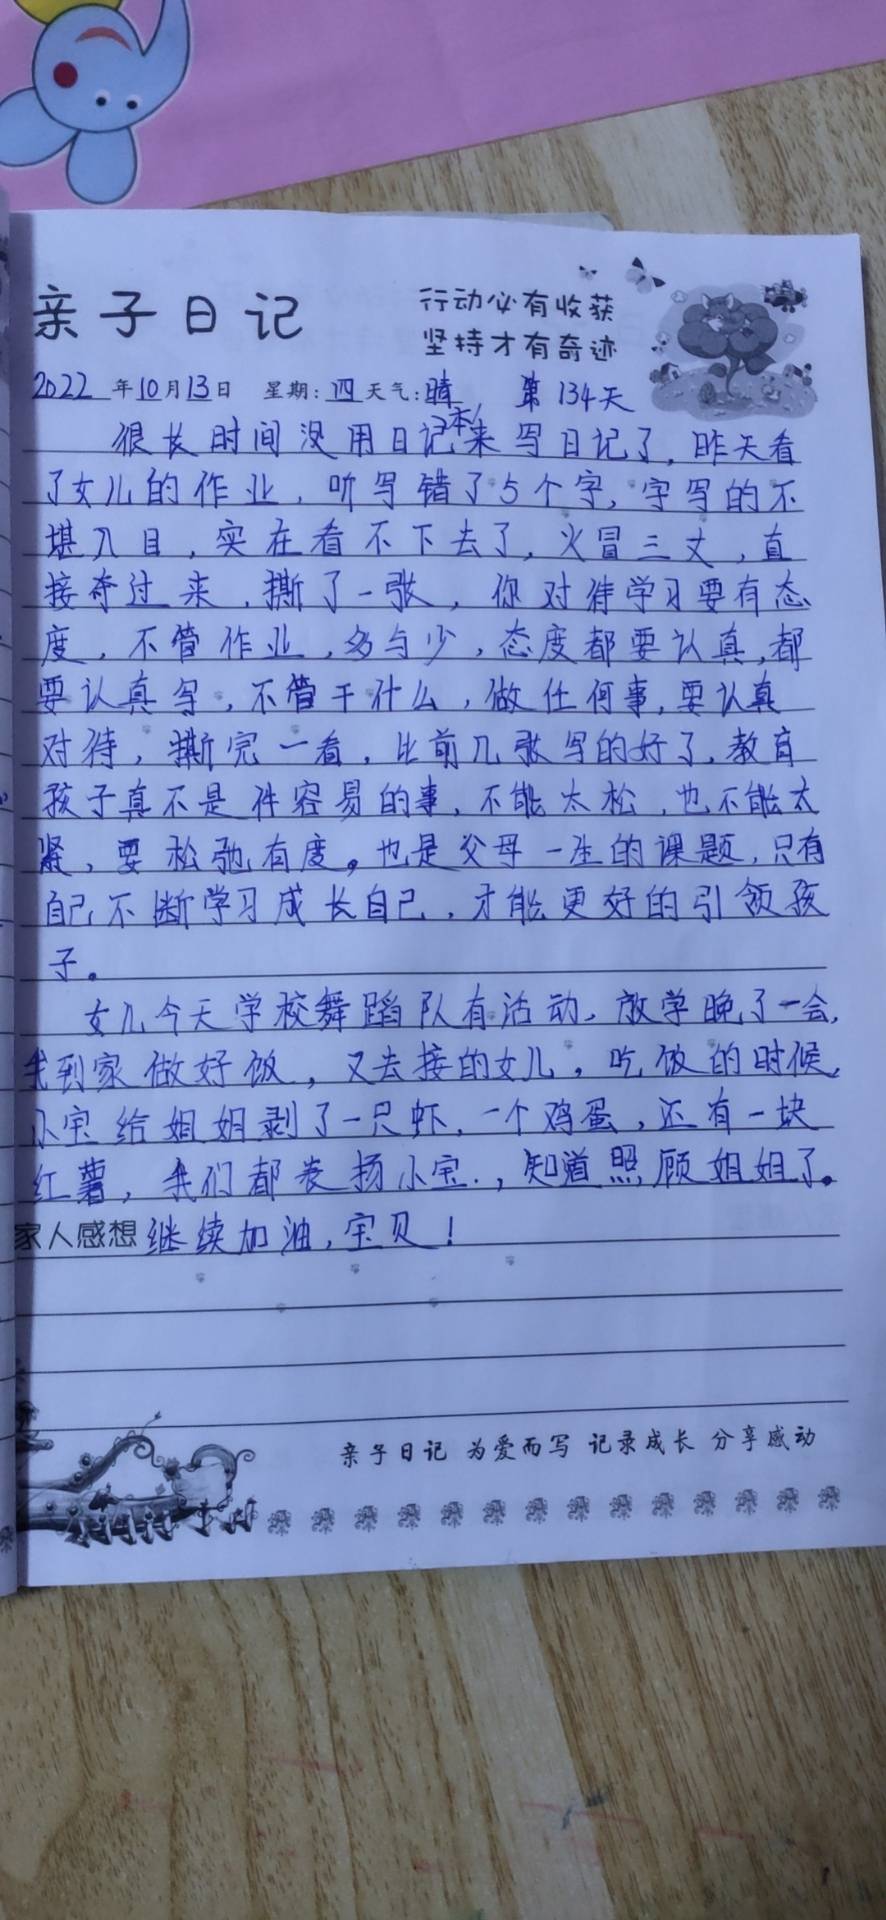 亲子日记
行动必有收获
坚持才有奇迹
2022年10月13日 星期:四 天气:晴, 第134天
很长时间没用日记本来写日记了，昨天看
了女儿的作业，听写错了5个字，字写的不
堪入目，实在看不下去了，火冒三丈，直
接夺过来，撕了一张，你对待学习要有态
度，不管作业，多与少，态度都要认真，都
要认真写，不管干什么，做任何事，要认真
对待，撕完一看，比前几张写的好了，教育
孩子真不是件容易的事，不能太松，也不能太
紧，要松弛有度。也是父母一生的课题，只有
自己不断学习成长自己，才能更好的引领孩
子。
女儿今天学校舞蹈队有活动，放学晚了一会，
我到家做好饭，又去接的女儿，吃饭的时候，
小宝给姐姐剥了一只虾，一个鸡蛋，还有一块
红薯，我们都表扬小宝.，知道照顾姐姐了。
家人感想 继续加油，宝贝！
亲子日记 为爱而写 记录成长 分享感动